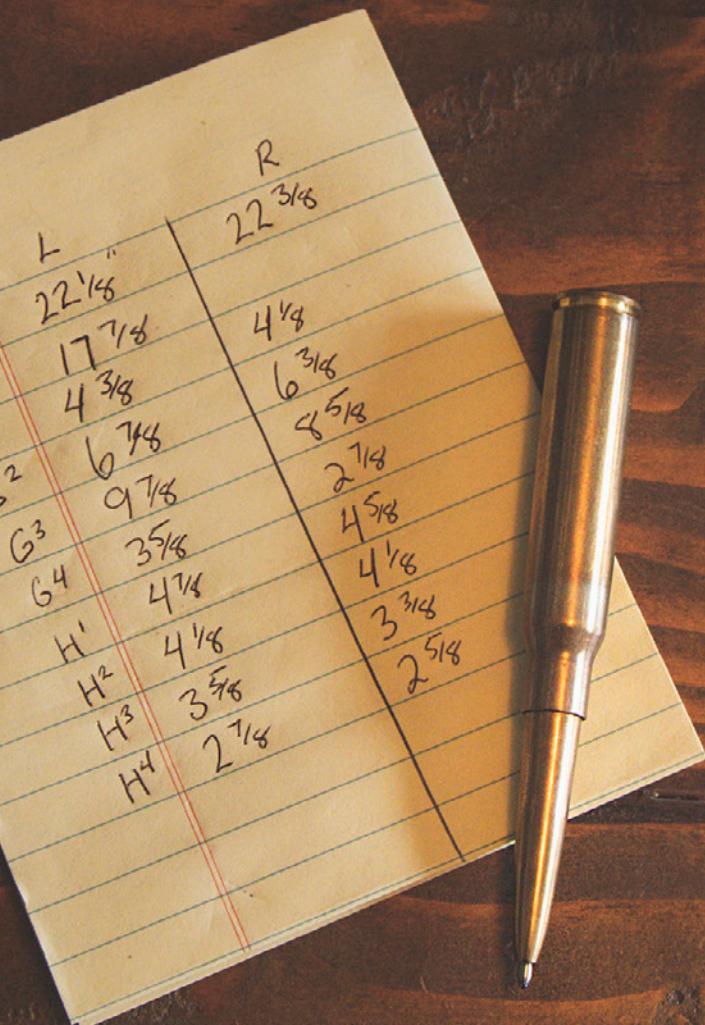 L R
22 1/8" 22 3/8
17 7/8
4 3/8 4 1/8
2 6 7/8 6 3/8
G3 9 7/8 8 5/8
G4 3 5/8 2 7/8
H1 4 7/8 4 5/8
H2 4 1/8 4 1/8
H3 3 5/8 3 3/8
H4 2 7/8 2 5/8